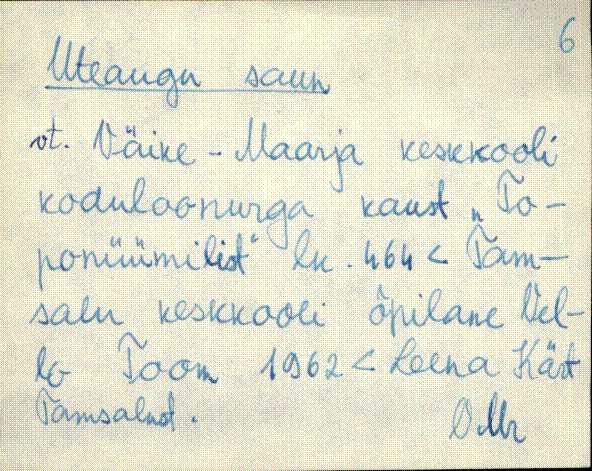 6
Uteaugu saun
vt. Väike-Maarja keskkooli
koduloonurga kaust „To-
ponüümilist" lk. 464 < Tam-
salu keskkooli õpilane Vel-
lo Toom 1962 < Leena Kärt
Tamsalust.